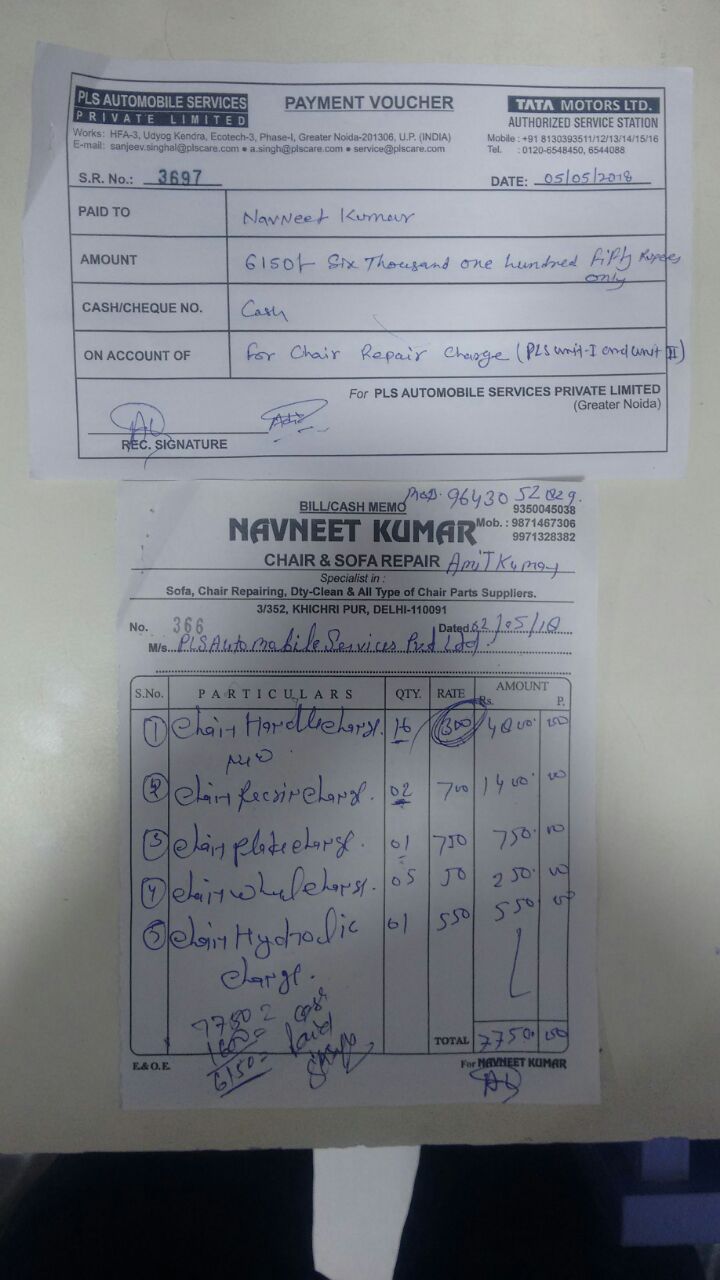 PLS AUTOMOBILE SERVICES
PRIVATE LIMITED
PAYMENT VOUCHER
TATA MOTORS LTD.
AUTHORIZED SERVICE STATION
Works: HFA-3, Udyog Kendra, Ecotech-3, Phase-I, Greater Noida-201306, U.P. (INDIA)
E-mail: sanjeev.singhal@plscare.com ● a.singh@plscare.com ● service@plscare.com
Mobile : +91 8130393511/12/13/14/15/16
Tel. : 0120-6548450, 6544088
S.R. No.: 3697
DATE: 05/05/2018
PAID TO Navneet Kumar
AMOUNT 6150/- Six Thousand one hundred fifty Rupees
only
CASH/CHEQUE NO. Cash
ON ACCOUNT OF for Chair Repair Charge (PLS unit-I and unit II)
For PLS AUTOMOBILE SERVICES PRIVATE LIMITED
(Greater Noida)
REC. SIGNATURE
BILL/CASH MEMO
9350045038
NAVNEET KUMAR Mob. : 9871467306
9971328382
CHAIR & SOFA REPAIR Amit Kumar
Specialist in :
Sofa, Chair Repairing, Dty-Clean & All Type of Chair Parts Suppliers.
3/352, KHICHRI PUR, DELHI-110091
No. 366 Dated 02/05/18
M/s PLS Automobile Services Pvt Ltd.
S.No. PARTICULARS QTY. RATE AMOUNT
Rs. P.
1 Chair Handle charge. 16 300 4800.00
2 Chair charge. 02 700 1400.00
3 Chair plate charge. 01 750 750.00
4 Chair wheel charge. 05 50 250.00
5 Chair Hydrolic 01 550 550.00
charge.
7750=
1600=
6150=
cash
Paid
TOTAL 7750.00
E.& O.E.
For NAVNEET KUMAR